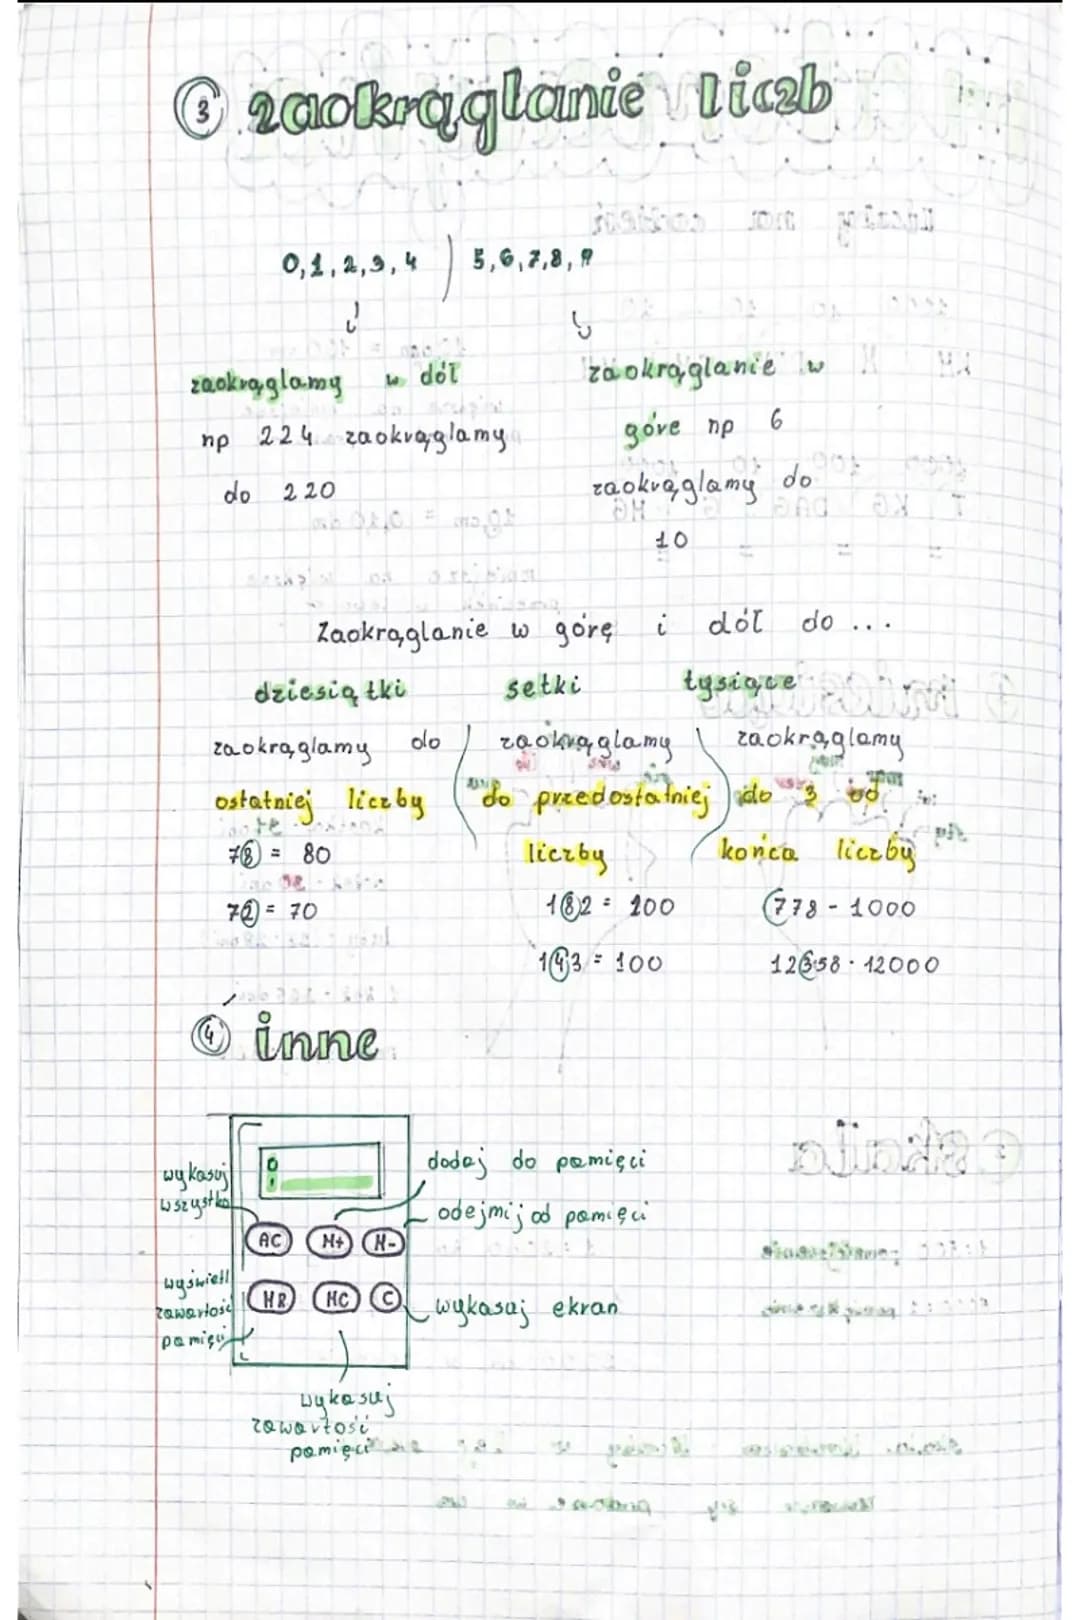 3 zaokrąglanie liczb
0,1,2,3,4 ) 5,6,7,8,9
zaokrąglamy w dół
np 224 zaokrąglamy
do 220
zaokrąglanie w
góre np 6
zaokrąglamy do
10
Zaokrąglanie w górę i dół do ...
dziesiątki setki tysiące
zaokrąglamy do
ostatniej liczby
78 = 80
72 = 70
zaokrąglamy
do przedostatniej
liczby
182 = 200
143 = 100
zaokrąglamy
do 3 od
końca liczby
778 - 1000
12358 - 12000
4 inne
0
wykasuj
wszystko
dodaj do pamięci
odejmij od pamięci
AC M+ M-
wyświetl
zawartość
pamięci
MR MC C
wykasuj ekran
wykasuj
zawartość
pamięci